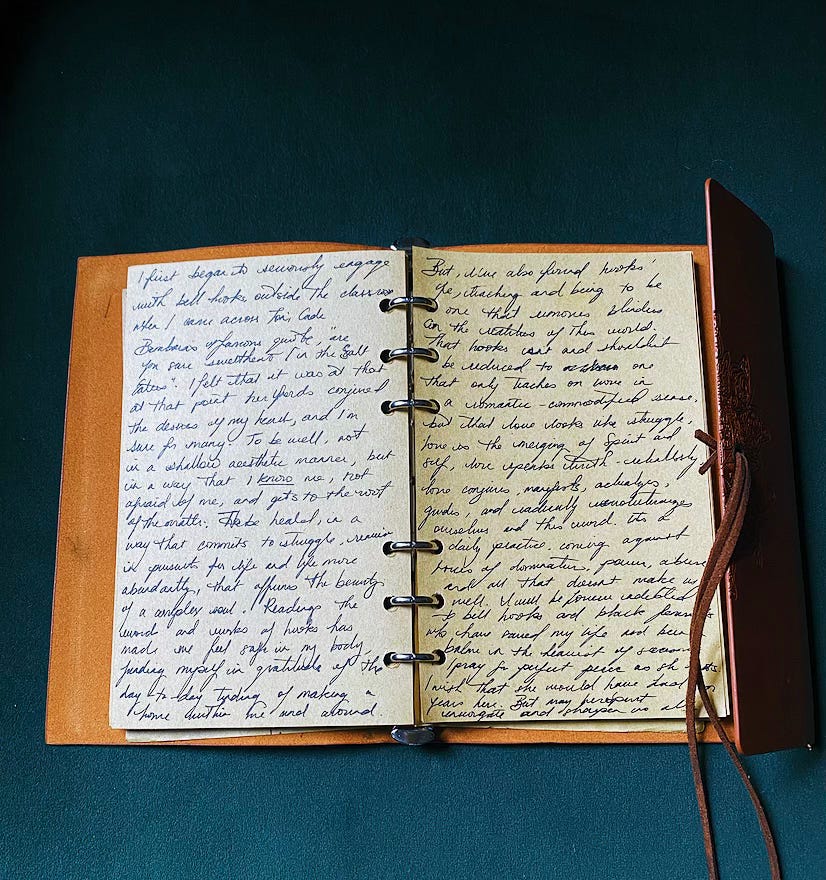 I first began to seriously engage
with bell hooks outside the classroom
when I came across Toni Cade
Bambara's famous quote, "are
you sure sweetheart". I in the Salt
Eaters". I felt that it was at that
at that point her words conjured
the desires of my heart, and I'm
sure for many. To be well, not
in a shallow aesthetic manner, but
in a way that I know me, not
afraid of me, and gets to the root
of the matter. To be healed, in a
way that commits to struggle, remain
in pursuit for life and life more
abundantly, that affirms the beauty
of a complex soul. Reading the
word and works of hooks has
made me feel safe in my body,
finding myself in gratitude of the
day to day tending of making a
home within me and around.
But, I've also found hooks'
life, teaching and being to be
one that removes blinders
on the realities of this world.
That hooks isn't and shouldn't
be reduced to one
that only teaches on love in
a romantic-commodified sense,
but that love looks like struggle,
love is the merging of spirit and
self, love speaks truth-rebelliously
love conjures, manifests, actualizes,
guides, and radically revolutionizes
ourselves and this world. It's a
daily practice, coming against
forces of domination, power, abuse
and all that doesn't make us
well. I will be forever indebted
to bell hooks and black feminists
who have saved my life and been
balm in the heaviest of seasons
I pray for perfect peace as she rests
I wish that she would have had
years here. But may her spirit
invigorate and sharpen us all